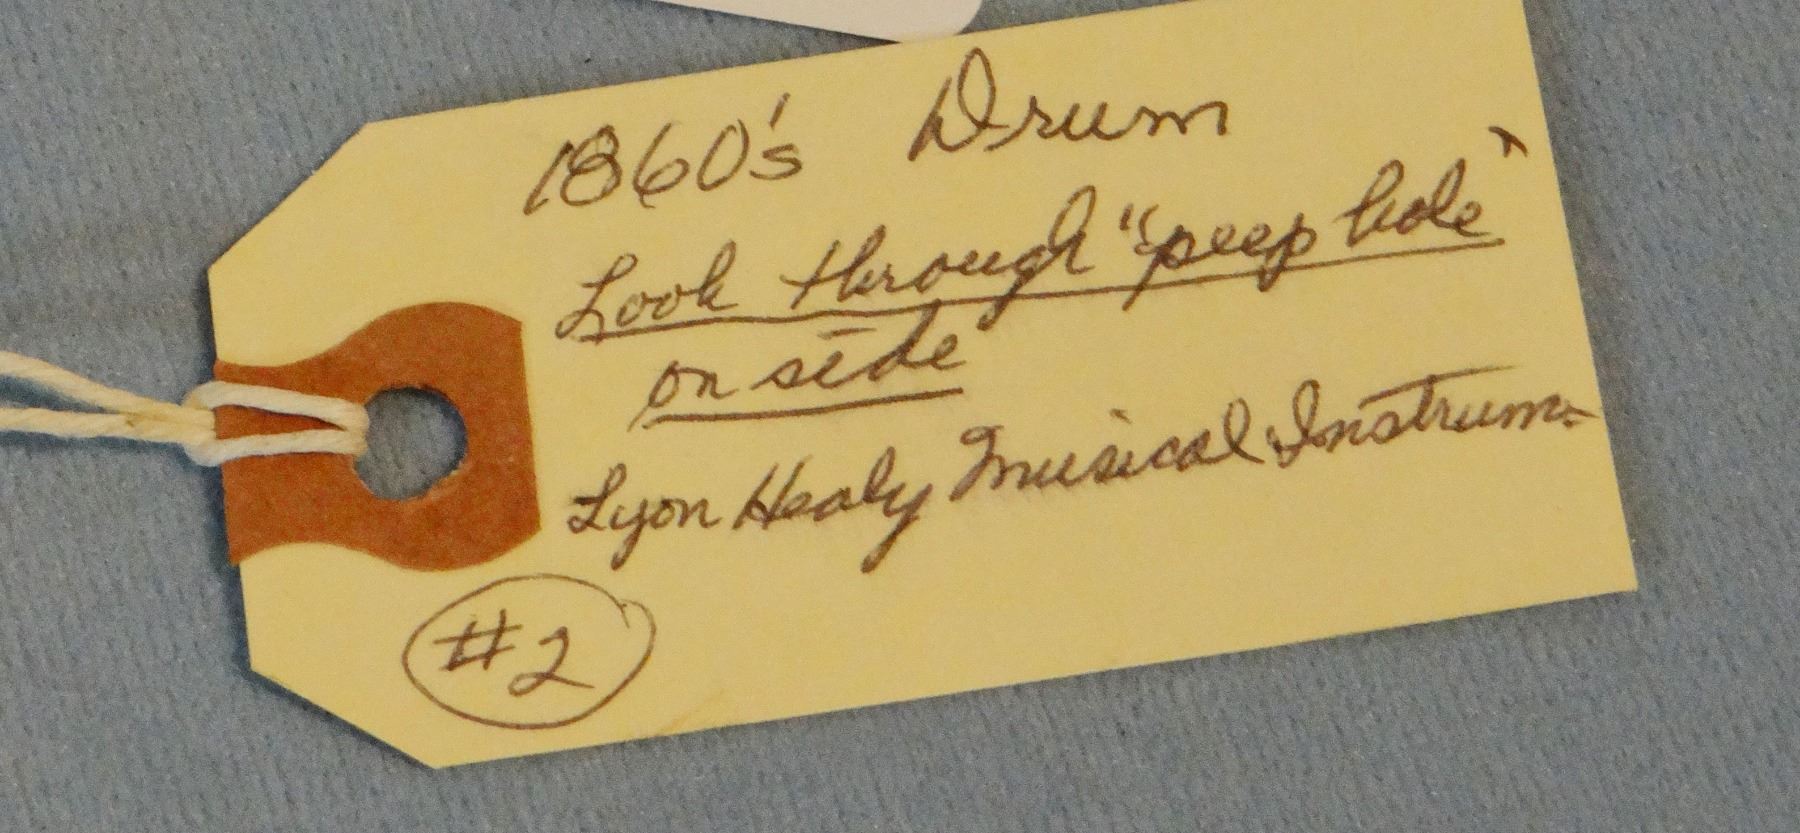 1860's Drum
Look through "peep hole"
on side
Lyon Healy Musical Instrum-
#2